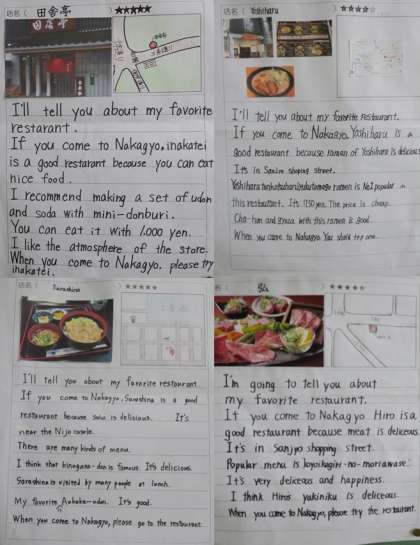 店名( 田舎亭 ) ★★★★★
I'll tell you about my favorite
restarant.
If you come to Nakagyo, inakatei
is a good restarant because you can eat
nice food.
I recommend making a set of udon
and soda with mini-donburi.
You can eat it with 1,000 yen.
I like the atmosphere of the store.
When you come to Nakagyo. please try
inakatei.
店名( Yoshiharu ) ★★★★☆
I'll tell you about my favorite restaurant.
If you come to Nakagyo. Yoshiharu is a
good restaurant because ramen of Yoshiharu is delicious
It's in Sanjo shoping street.
ramen is No.1 popular in
this restaurant. It's 950 yen. The price is cheap.
Cha-han and gyoza with this ramen is good.
When you come to Nakagyo. You should try one.
店名( Sarashina ) ★★★★★
I'll tell you about my favorite restaurant.
If you come to Nakagyo, Sarashina is a good
restaurant because soba is delicious. It's
near the Nijo castle.
There are many kinds of menu.
I think that kitsune-don is famous. It's delicious.
Sarashina is visited by many people at lunch.
My favorite Ankake-udon. It's good.
When you come to Nakagyo, please go to the restaurant.
★★★★★
I'm going to tell you about
my favorite restaurant.
If you come to Nakagyo Hiro is a
good restaurant because meat is deliceous.
It's in Sanjyo shopping street.
Popular menu is
It's very deliceous and happiness.
I think Hiros yakiniku is deliceous.
When you come to Nakagyo, please try the restaurant.